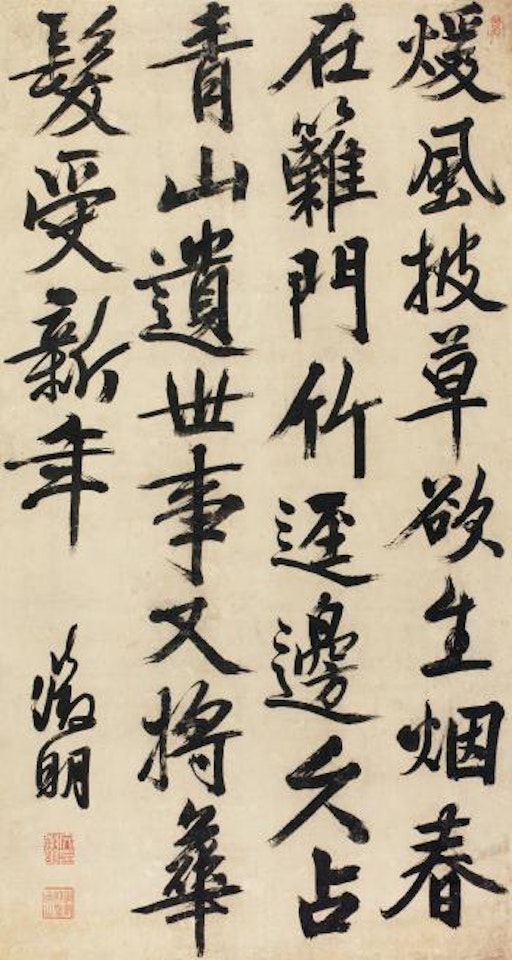 煖風披草欲生烟春
在籬門竹逕邊久占
青山遺世事又將華
髮受新年
徵明